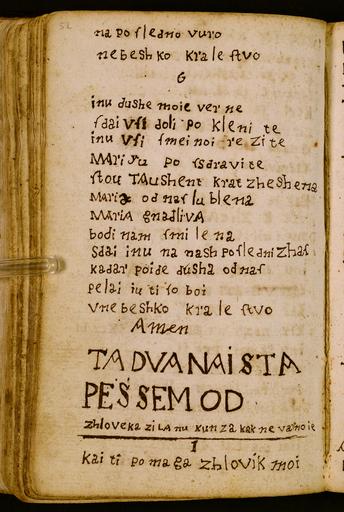 na poſledno vuro
nebeshko kraleſtvo
6
inu dushe moie verne
ſdai vſi doli po kleni te
inu vſi ſmei noi re zi te
MARIJU po ſsdravite
ſtou TAushent krat zheshena
MARIA od naſ lu blena
MARIA gnadliVA
bodi nam ſmilena
sdai inu na nash poſledni Zhaſ
kadar poide dusha od naſ
pelai iu ti ſo boi
vnebeshko kraleſtvo
Amen
TA DVANAISTA
PEŠSEM OD
zhloveka zi LA nu kunza kak ne
1
kai ti po ma ga zhloviK moi